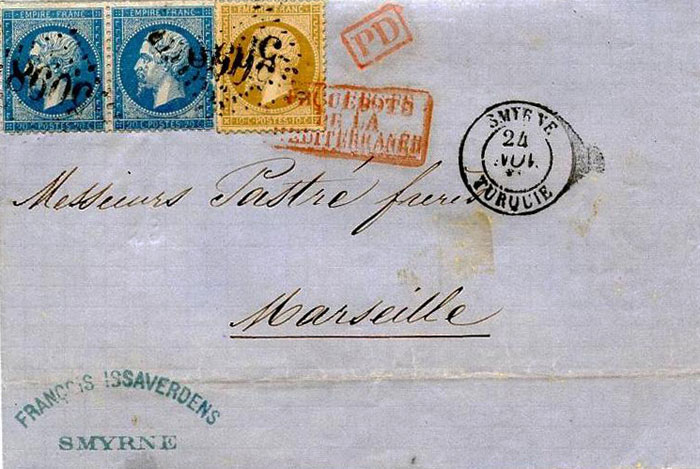 EMPIRE FRANC
EMPIRE FRANC
20 C POSTES 20 C
20 C POSTES 20 C
10 C POSTES 10 C
5098
5098
PD
PAQUEBOTS
DE LA
MEDITERRANEE
SMYRNE
24
NOV.
TURQUIE
Messieurs Pastré frères
Marseille
FRANÇOIS ISSAVERDENS
SMYRNE